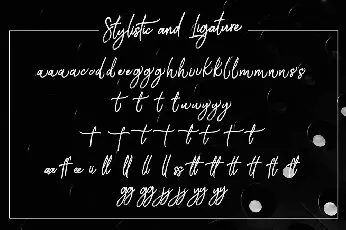 Stylistic and Ligature
a a a a c o d d e e g g g h h i i k k l l m m n n s s
t t t t u u y y y
t t t t t t t t
aa ff ee ii ll ll ll ll ss tt tt tt tt ft ft
gg gg jj jj yy yy